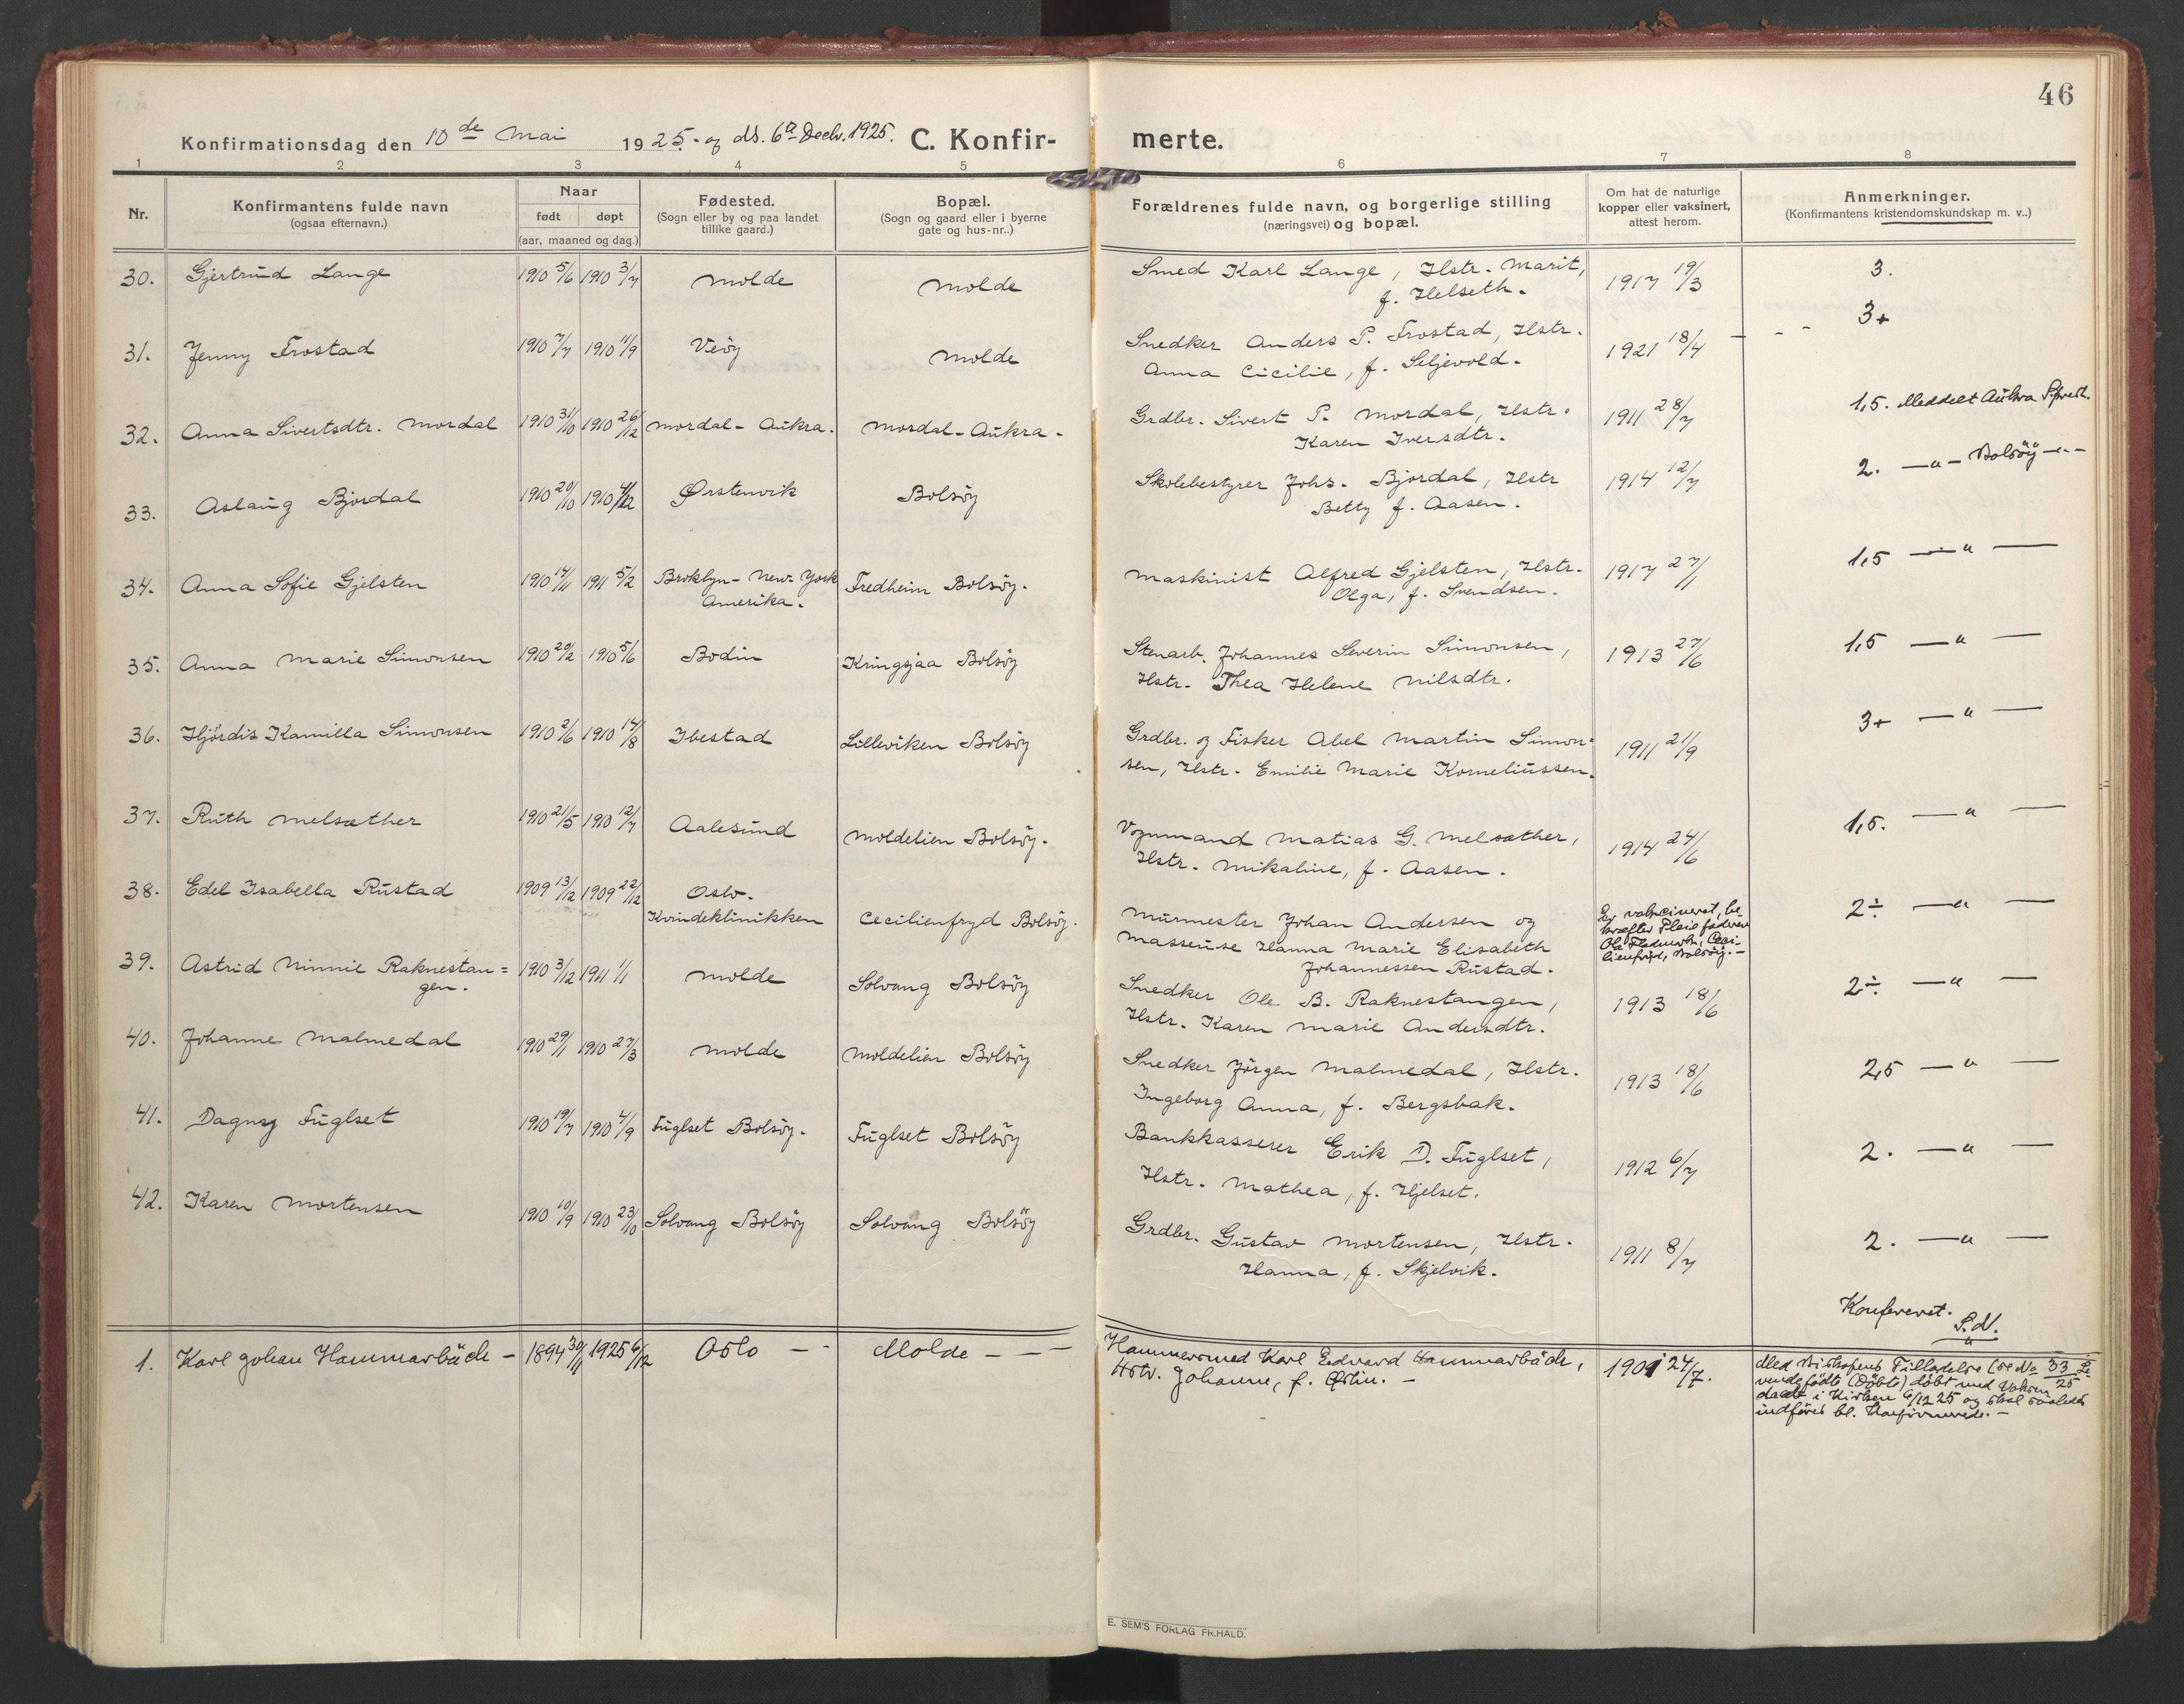 46
Konfirmationsdag den 10de Mai 1925 - og ds. 6te Decbr. 1925. C. Konfirmerte.
1 2 3 4 5 6 7 8
Nr. Konfirmantens fulde navn (ogsaa efternavn.) Naar født døpt (aar, maaned og dag.) Fødested. (Sogn eller by og paa landet tillike gaard.) Bopæl. (Sogn og gaard eller i byerne gate og hus-nr..) Forældrenes fulde navn, og borgerlige stilling (næringsvei) og bopæl. Om hat de naturlige kopper eller vaksinert, attest herom. Anmerkninger. (Konfirmantens kristendomskundskap m. v..)
30. Gjertrud Lange 1910 5/6 1910 3/7 Molde Molde Smed Karl Lange, Hstr. Marit, f. Helseth. 1917 19/3 3.
31. Jenny Frostad 1910 7/7 1910 11/9 Veöy Molde Snedker Anders P. Frostad, Hstr. Anna Cicilie, f. Seljevold. 1921 18/4 - - - 3+
32. Anna Sivertsdtr. Mordal 1910 31/10 1910 26/12 Mordal - Aukra. Mordal - Aukra - Grdbr. Sivert P. Mordal, Hstr. Karen Iversdtr. 1911 28/7 1,5. Meddelt Aukra
33. Aslaug Bjordal 1910 20/10 1910 4/12 Ørstenvik Bolsöy Skolebestyrer Johs. Bjordal, Hstr Betty f. Aasen. 1914 12/7 2. —"— Bolsöy —"—
34. Anna Sofie Gjelsten 1910 14/11 1911 5/2 Broklyn - New-York Amerika. Fredheim Bolsöy. Maskinist Alfred Gjelsten, Hstr. Olga, f. Svendsen. 1917 27/1 1,5 —"—
35. Anna Marie Simonsen 1910 20/2 1910 5/6 Bodin Kringsjaa Bolsöy Stenarb. Johannes Severin Simonsen, Hstr. Thea Helene Nilsdtr. 1913 27/6 1,5 —"—
36. Hjördis Kamilla Simonsen 1910 2/6 1910 14/8 Ibestad Lilleviken Bolsöy Grdbr. og Fisker Abel Martin Simonsen, Hstr. Emilie Marie Korneliussen. 1911 21/9 3+ —"—
37. Ruth Melsæther 1910 21/5 1910 12/7 Aalesund Moldelien Bolsöy. Vognmand Matias G. Melsæther, Hstr. Mikaline, f. Aasen. 1914 24/6 1,5. —"—
38. Edel Isabella Rustad 1909 13/12 1909 22/12 Oslo. Kvindeklinikken Cecilienfryd Bolsöy. Murmester Johan Andersen og Masseuse Hanna Marie Elisabeth Johannessen Rustad. Er vakcineret, bekræfter Pleiefaderen Ola Cecilienfryd, Bolsöy. - 2÷ —"—
39. Astrid Minnie Raknestangen. 1910 3/12 1911 1/1 Molde Solvang Bolsöy Snedker Ole B. Raknestangen, Hstr. Karen Marie Andersdtr. 1913 18/6 2÷ —"—
40. Johanne Malmedal 1910 29/1 1910 27/3 Molde Moldelien Bolsöy Snedker Jörgen Malmedal, Hstr. Ingeborg Anna, f. Bergsbak. 1913 18/6 2,5 —"—
41. Dagny Fuglset 1910 19/7 1910 4/9 Fuglset Bolsöy. Fuglset Bolsöy Bankkasserer Erik D. Fuglset, Hstr. Mathea, f. Hjelset. 1912 6/7 2. —"—
42. Karen Mortensen 1910 10/9 1910 23/10 Solvang Bolsöy Solvang Bolsöy Grdbr. Gustav Mortensen, Hstr. Hanna, f. Skjelvik. 1911 8/7 2. —"—
Konfereret. S.N.
1. Karl Johan Hammarbäck - 1894 30/11 1925 6/12 Oslo - - Molde - - - Hammersmed Karl Edvard Hammarbäck, Hstr. Johanne, f. Östlin. - 1901 24/7. Med Biskopens Tilladelse (se No 33 Levendefödte (Döbte) 25 döbt med Voksendaab i Kirken 6/12 25 og skal saaledes indföres bl. Konfirmerede. -
E. SEM'S FORLAG FR.HALD.